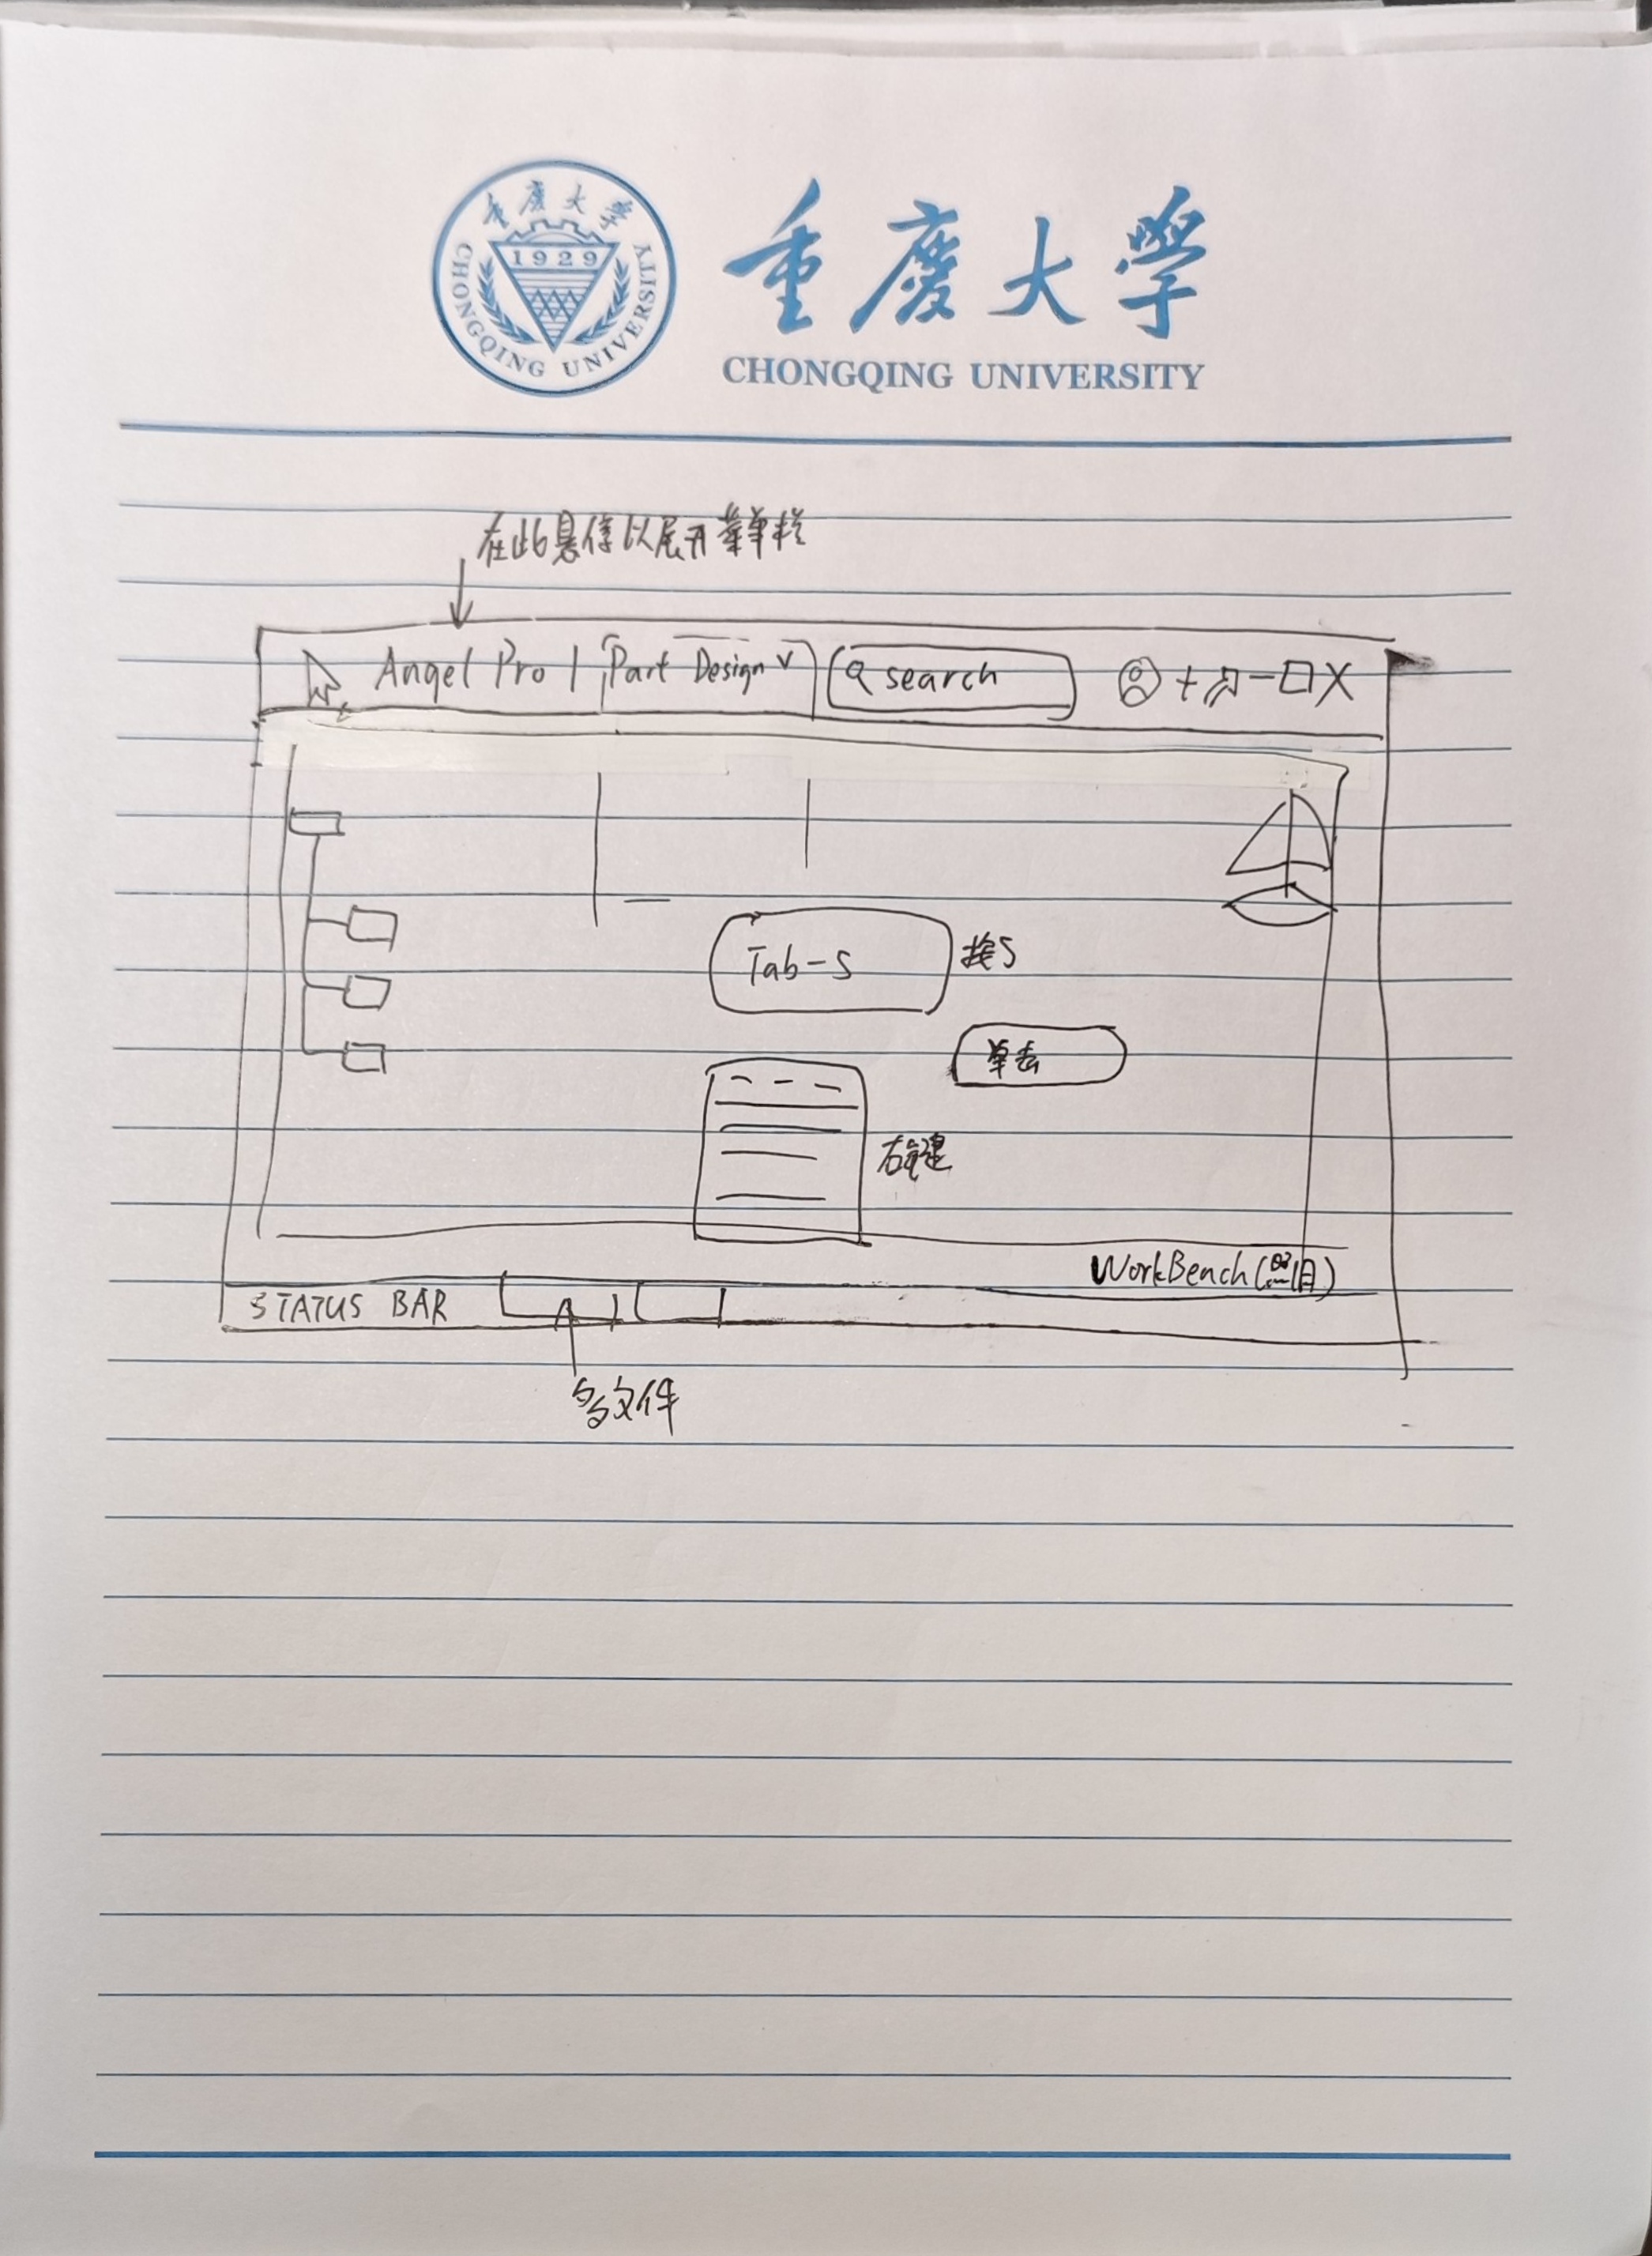 重慶大學
1929
CHONGQING UNIVERSITY
重慶大學
CHONGQING UNIVERSITY
在此悬停以展开菜单栏
Angel Pro | Part Design search
Tab-S 按S
单击
右键
WorkBench(
STATUS BAR
多文件